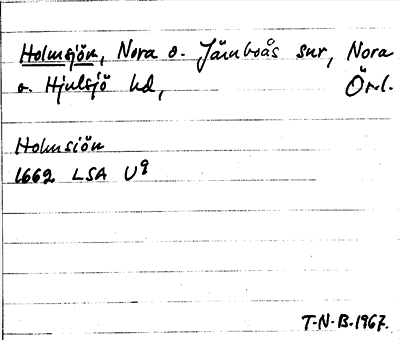 Holmsjön, Nora o. Järnboås snr, Nora
o. Hjulsjö hd, Örl.
Holmsiön
1662 LSA U9
T.N.B.1967.